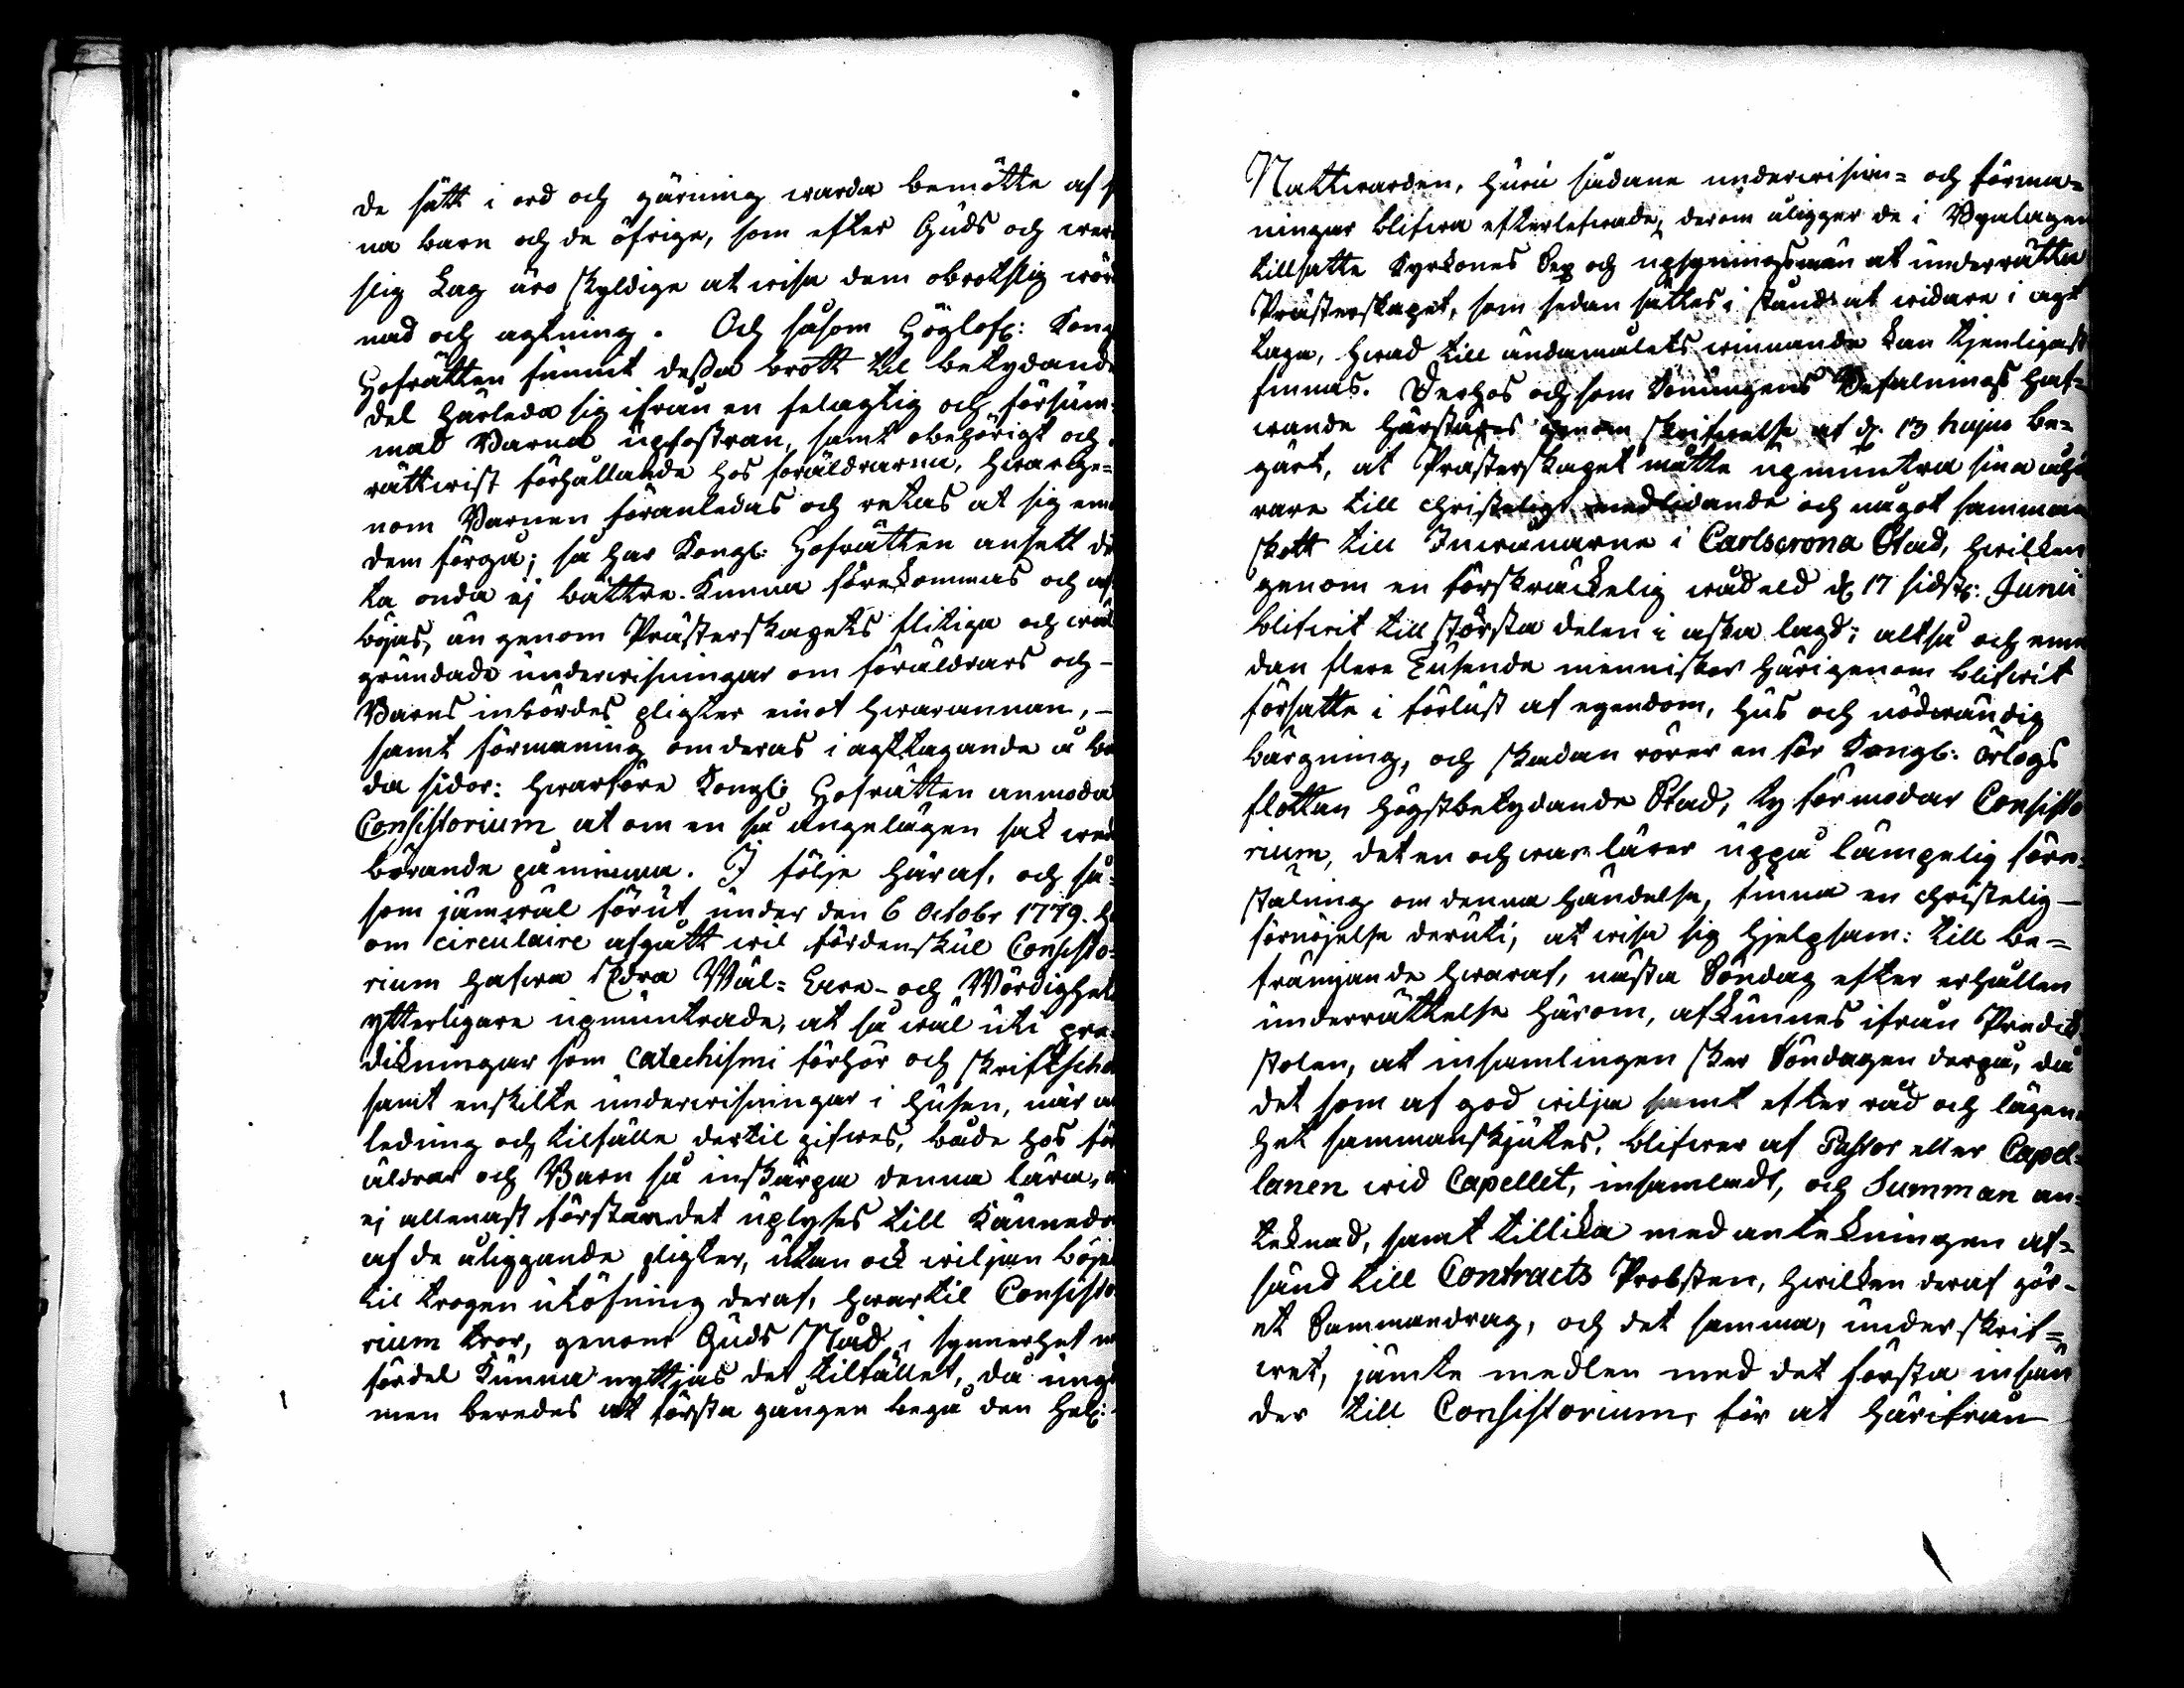 de sätt i ord och gärning warda bemötte af
na barn och de öfrige, som efter Guds och
slig Lag äro skyldige at wisa dem obrotslig
nad och agtning. Och såsom Höglofl: Kong
Hofrätten funnit dessa brott til betydande
del härleda sig ifrån en felagtig och försum-
mad Barna upfostran, samt obehörigt och
rättwist förhållande hos föräldrarna, hwarige-
nom Barnen föranledas och retas at sig
dem förgå; så har Kongl: Hofrätten ansett
ta onda ej bättre kunna förekommas och af
böjas, än genom Prästerskapets flitiga och wäl
grundade underwisningar om föräldrars och -
Barns inbördes pligter emot hwarannan, -
samt förmaning om deras i agttagande å
da sidor: hwarföre Kongl: Hofrätten anmoda
Consistorium at om en så angelägen sak
börande påminna. I följe häraf, och så-
som jämwäl förut under den 6 Octobr 1779.
om circulaire afgått wil fördenskul Consisto-
rium hafwa Edra Wäl- Ehre- och Wördighet
ytterligare upmuntrade, at så wäl uti pre-
dikningar som Catechismi förhör och skriftschol
samt enskilte underwisningar i husen, när
ledning och tilfälle dertil gifwes, både hos för
äldrar och Barn så inskärpa denna lära,
ej allenast förståndet uplyses till kännedo
af de åliggande pligter, utan ock wiljan böjes
til trogen utöfning deraf, hwartil Consisto
rium tror, genom Guds Nåd i synnerhet
fördel kunna nyttjas det tilfället, då ung
men beredes att första gången begå den Hel:
Nattwarden, huru sådane underwisnin- och förma-
ningar blifwa efterlefwade, derom åligger de i Byalagen
tillsatte Kyrkones Sex och upsyningsmän at underrätta
Prästerskapet, som sedan sättes i stånd at widare i agt
taga, hwad till ändamålets winnande kan tjenligast
finnas. Derhos och som Konungens Befalnings haf-
wande härstädes genom skrifwelse af d. 13 hujus be-
gärt, at Prästerskapet måtte upmuntra sina åhö
rare till christeligt medlidande och något samman
skott till Inwånarne i Carlscrona Stad, hwilken
genom en förskräckelig wådeld d. 17 sidstl: Junii
blifwit till största delen i aska lagd; altså och
dan flere Tusende menniskor härigenom blifwit
försatte i förlust af egendom, hus och nödwändig
bärgning, och skadan rörer en för Kongl: Örlogs
flottan högstbetydande Stad; ty förmodar Consisto
rium, det en och war lärer uppå lämpelig före-
stälning om denna händelse, finna en christelig -
förnöjelse deruti, at wisa sig hjelpsam: till be-
främjande hwaraf, nästa Söndag efter erhållen
underrättelse härom, afkunnes ifrån Predik
stolen, at insamlingen sker Söndagen derpå, då
det som af god wilja samt efter råd och lägen-
het sammanskjutes, blifwer af Pastor eller Capel-
lanen wid Capellet, insamladt, och Summan an-
teknad, samt tillika med antekningen af-
sänd till Contracts Probsten, hwilken deraf gör-
et Sammandrag, och det samma, underskrif-
wet, jämte medlen med det första insän
der till Consistorium, för at härifrån